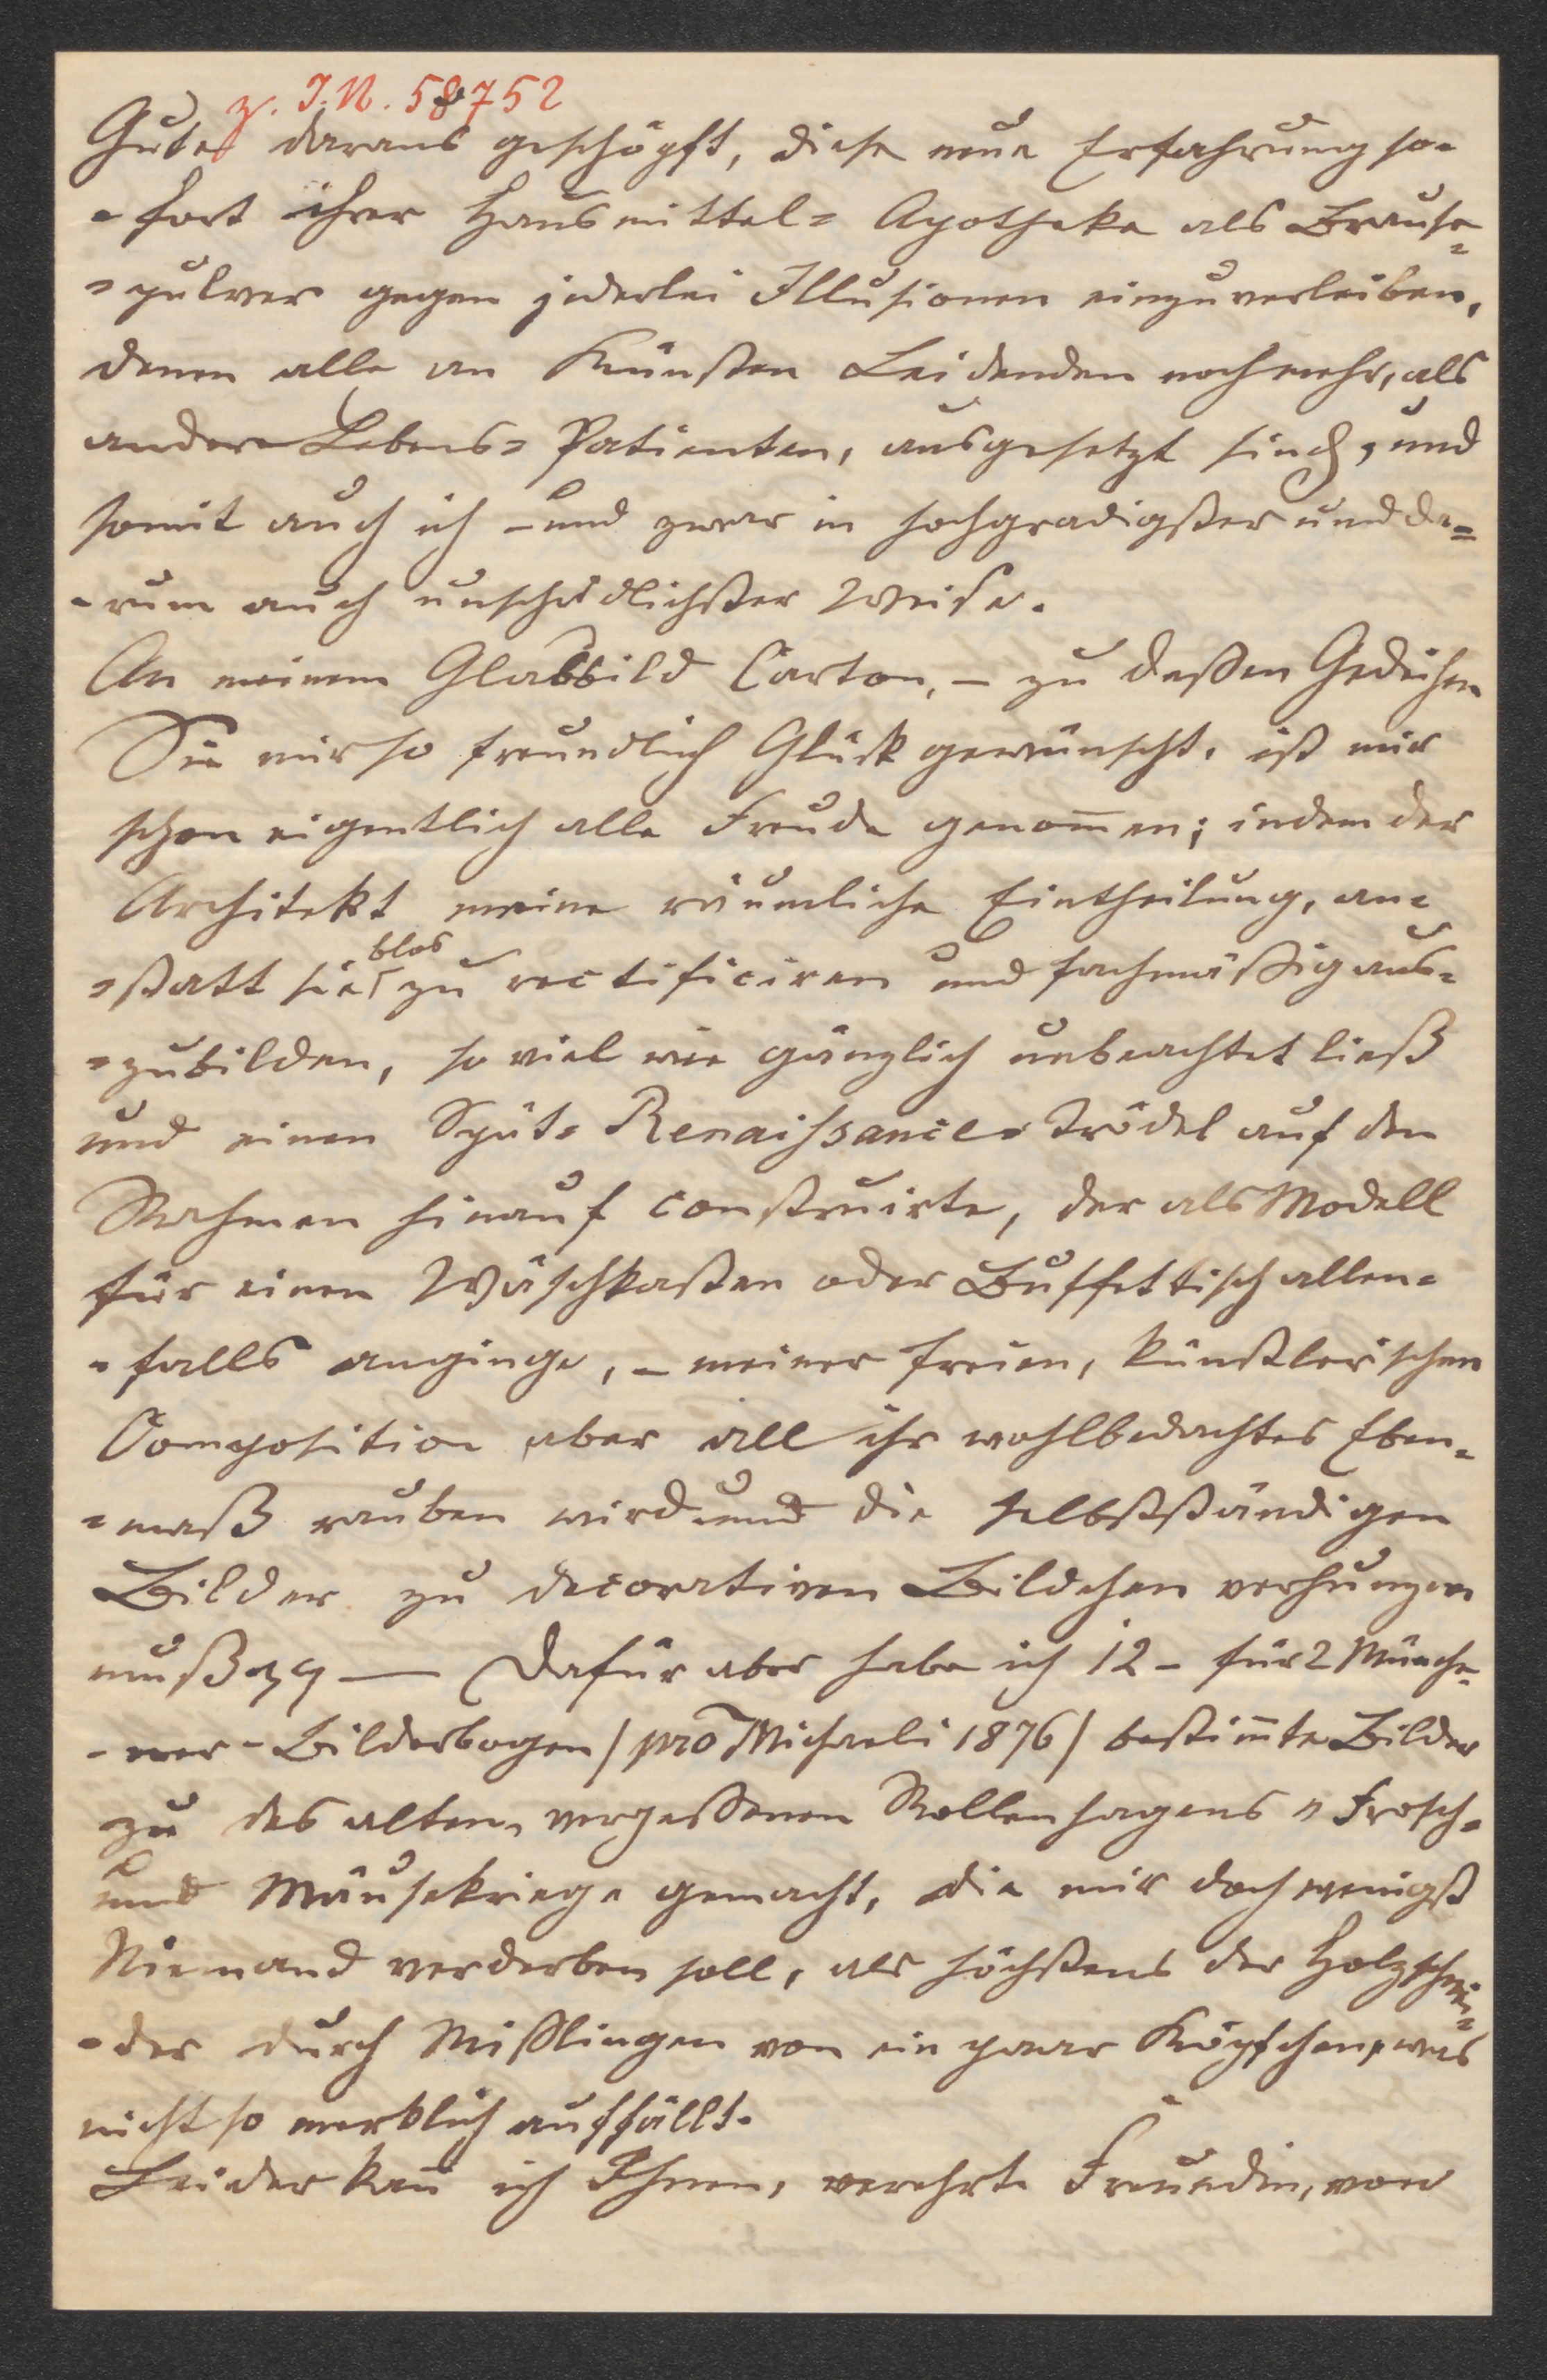 z. I.N. 58752
Gutes daraus geschöpft, diese neue Erfahrung so-
-fort ihrer Hausmittel= Apotheke als Brause=
=pulver gegen jederlei Illusionen einzuverleiben,
denen alle an Künsten Leidenden noch mehr, als
andere Lebens= Patienten, ausgesetzt sind, und
somit auch ich – und zwar in hochgradigster und da=
-rum auch unschädlichster Weise.
An meinem Glasbild Carton, – zu dessen Gedeihen
Sie mir so freundlich Glück gewünscht, ist mir
schon eigentlich alle Freude genom̄en; indem der
Architekt meine räumliche Eintheilung, an=
=statt sie blos zu rectificiren und fachmäßig aus=
=zubilden, so viel wie gänzlich unbeachtet ließ
und einen Spät= Renaissance= Trödel auf den
Rahmen hinauf construirte, der als Modell
für einen Wäschkasten oder Buffettisch allen=
=falls anginge, – meiner freien, künstlerischen
Composition aber all ihr wohlbedachtes Eben=
=maß rauben wird und die selbstständigen
Bilder zu decorativen Bildchen verhunzen
muß — Dafür aber habe ich 12 – für 2 Münche=
-ner – Bilderbogen / pro Michaeli 1876 / bestim̄te Bilder
zu des alten, vergessenen Rollenhagens " Frosch=
und Mäusekriege gemacht, die mir doch wenigst
Niemand verderben soll, als höchstens der Holzschnei=
=der durch Misslingen von ein paar Köpfchen, was
nicht so merklich auffällt.
Leider kan̄ ich Ihnen, verehrte Freundin, von